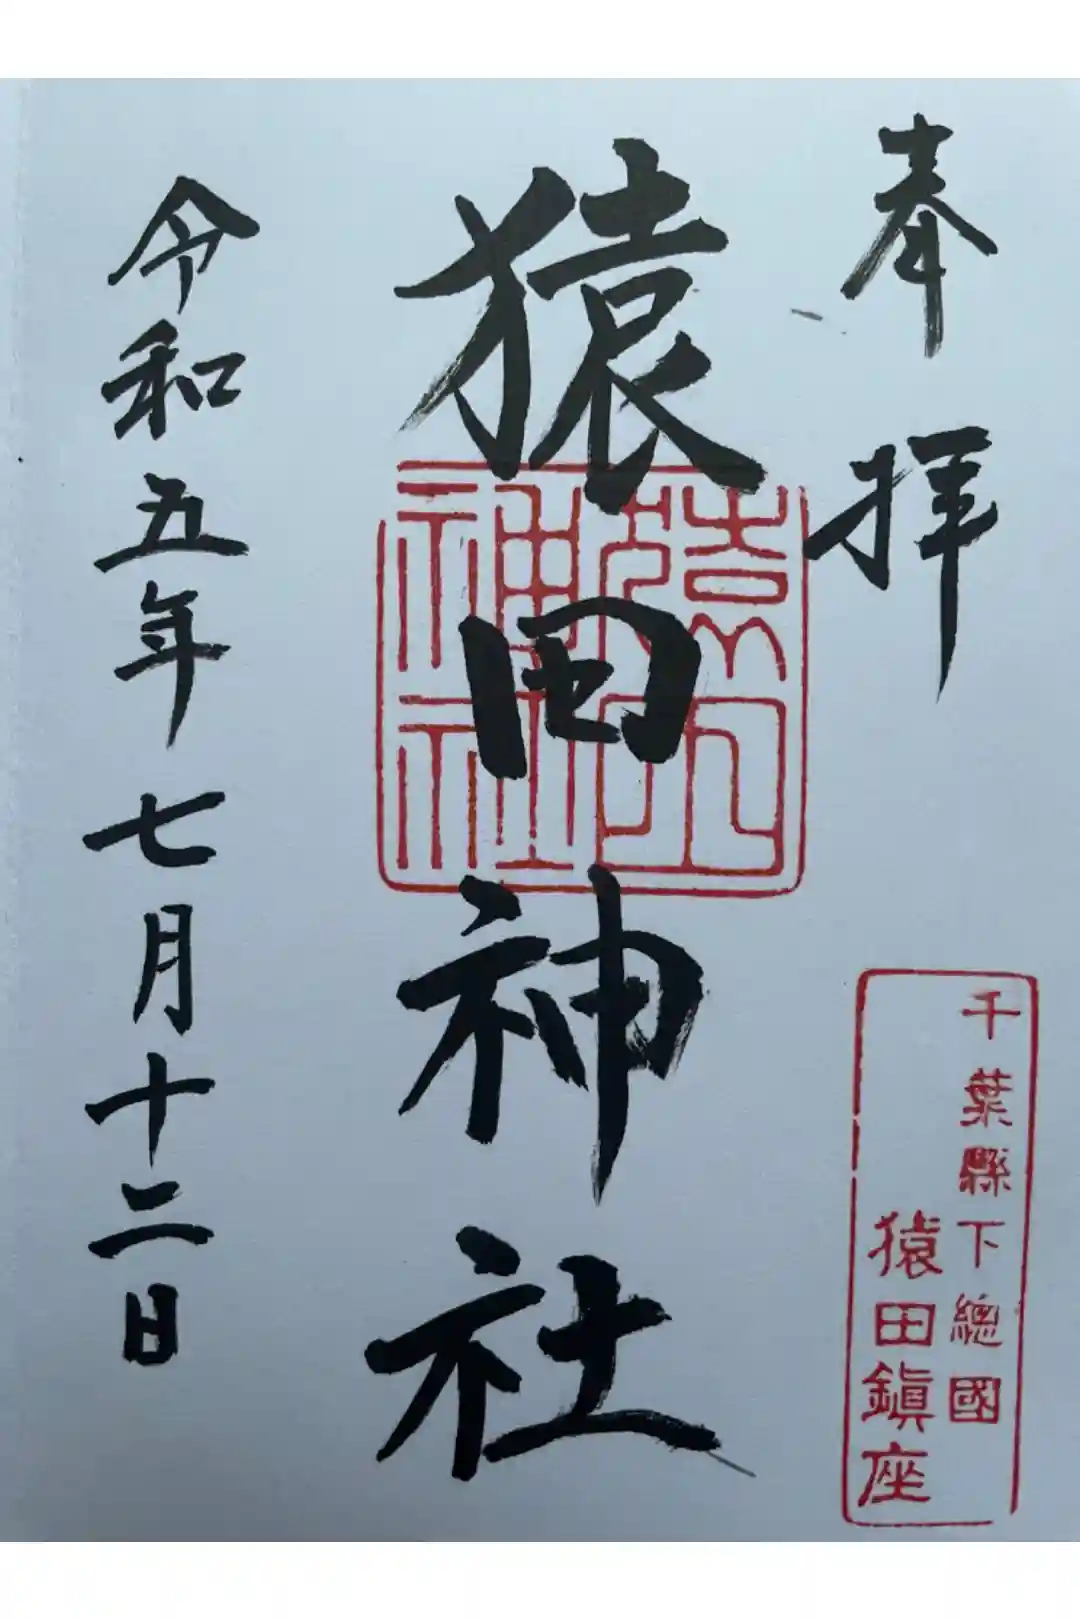 奉拝
千葉縣下總國
猿田鎭座
猿田神社
猿田
神社
令和五年七月十二日